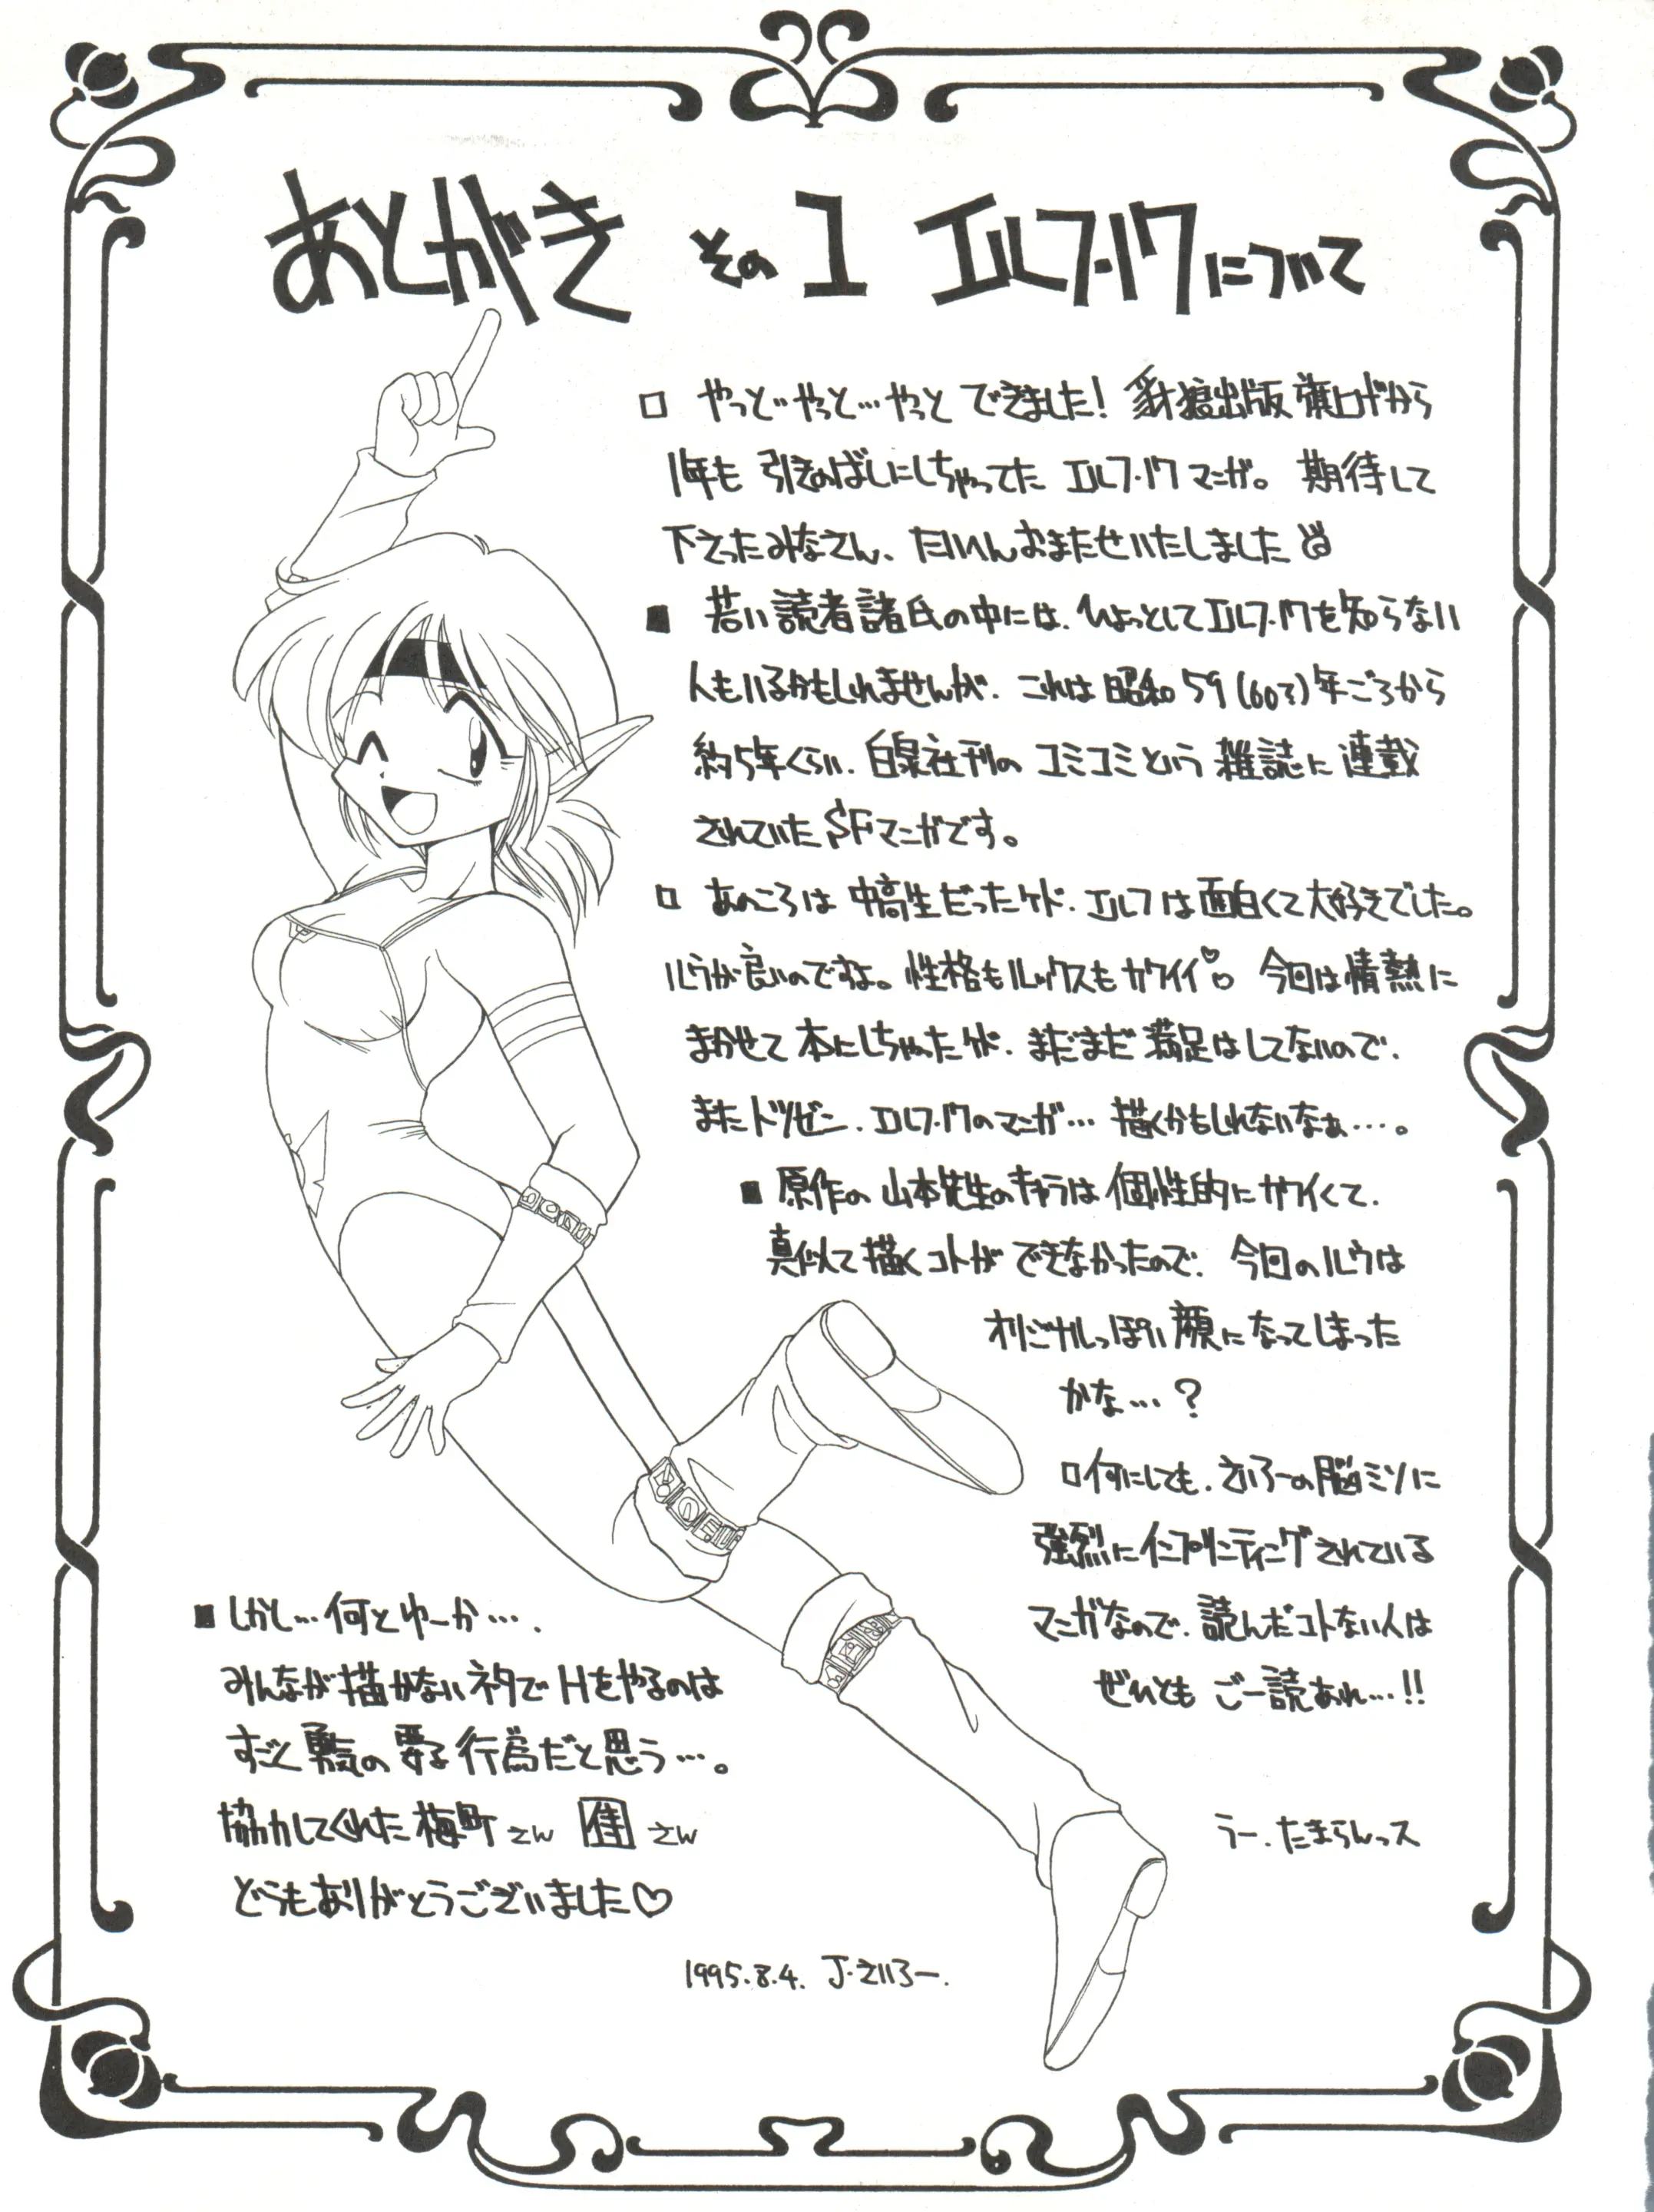 あとがき その1 エルフ・17について
□ やっと…やっと…やっと できました! 豺狼出版旗ロゴから
1年も 引きのばしにしちゃってた エルフ・17マンガ。 期待して
下さったみなさん、たいへんおまたせいたしました
■ 若い読者諸氏の中には、ひょっとしてエルフ・17を知らない
人もいるかもしれませんが、これは昭和59(60?)年ごろから
約5年くらい、白泉社刊の コミコミという 雑誌に 連載
されていた SFマンガです。
□ あのころは 中高生だったケド、エルフは面白くて大好きでした。
ルウが良いのですよ。性格もルックスもカワイイ♡ 今回は情熱に
まかせて 本にしちゃったケド、まだまだ 満足はしてないので、
またトツゼン、エルフ・17のマンガ… 描くかもしれないなぁ…。
■ 原作の 山本先生のキャラは 個性的にカワイくて、
真似て描くコトが できなかったので、今回のルウは
オリジナルっぽい 顔に なってしまった
かな…?
□何にしても、さいろーの脳ミソに
強烈にインプリンティングされている
マンガなので、読んだコトない人は
ぜひとも ご一読あれ…!!
■しかし…何とゆーか…、
みんなが描かないネタで Hをやるのは
すごく 勇気の 要る 行為だと思う…。
協力してくれた 梅町さん 国さん
どうもありがとうございました♡
うー、たまらんっス
1995.8.4. J・さいろー.